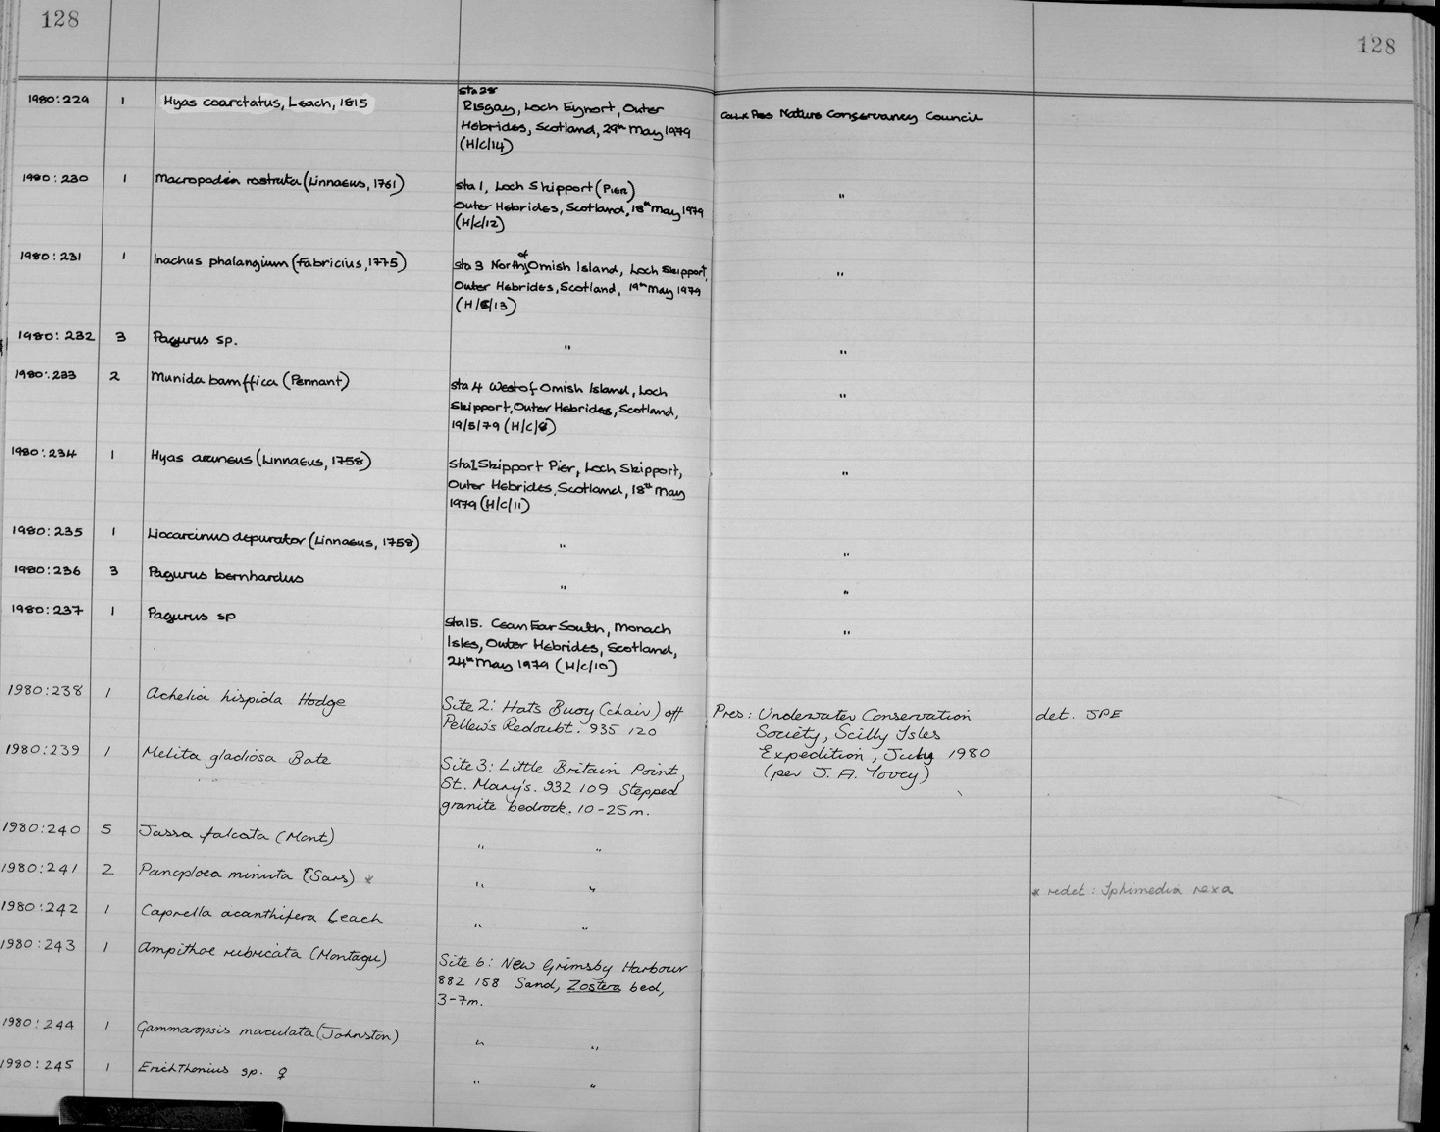 128
128
1980:229 1 Hyas coarctatus, Leach, 1815 sta 28
Risgay, Loch Eynort, Outer
Hebrides, Scotland, 29th May 1979
(H/C/14)
Coll & Pres Nature Conservancy Council
1980:230 1 Macropodia rostrata (Linnaeus, 1761) sta 1, Loch Skipport (Pier)
Outer Hebrides, Scotland, 18th May 1979
(H/C/12)
"
1980:231 1 Inachus phalangium (Fabricius, 1775) sta 3 North of Omish Island, Loch Skipport,
Outer Hebrides, Scotland, 19th May 1979
(H/C/13)
"
1980:232 3 Pagurus sp. " "
1980:233 2 Munida bamffica (Pennant) sta 4 West of Omish Island, Loch
Skipport, Outer Hebrides, Scotland,
19/5/79 (H/C/6)
"
1980:234 1 Hyas araneus (Linnaeus, 1758) sta 1 Skipport Pier, Loch Skipport,
Outer Hebrides, Scotland, 18th May
1979 (H/C/11)
"
1980:235 1 Liocarcinus depurator (Linnaeus, 1758) " "
1980:236 3 Pagurus bernhardus " "
1980:237 1 Pagurus sp sta 15. Cean Ear South, Monach
Isles, Outer Hebrides, Scotland,
24th May 1979 (H/C/10)
"
1980:238 1 Achelia hispida Hodge Site 2: Hats Buoy (chain) off
Pellew's Redoubt. 935 120
Pres: Underwater Conservation
Society, Scilly Isles
Expedition, July 1980
(per J. A. )
det. JPE
1980:239 1 Melita gladiosa Bate Site 3: Little Britain Point,
St. Mary's. 932 109 Stepped
granite bedrock. 10-25m.
1980:240 5 Jassa falcata (Mont) " "
1980:241 2 Panoploea minuta (Sars) * " " * redet: Iphimedia nexa
1980:242 1 Caprella acanthifera Leach " "
1980:243 1 Ampithoe rubricata (Montagu) Site 6: New Grimsby Harbour
882 158 Sand, Zostera bed,
3-7m.
1980:244 1 Gammaropsis maculata (Johnston) " "
1980:245 1 Ericthonius sp. ♀ " "